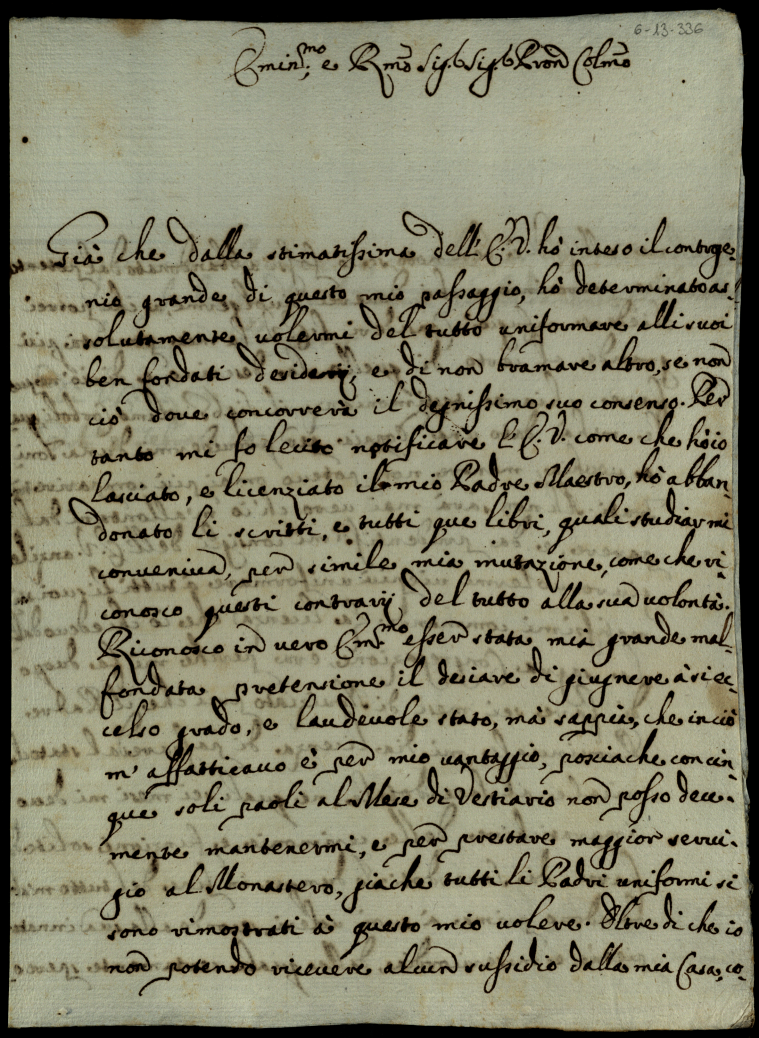 6-13-336
Emin:mo e Rmo Sig.r Sig.r Pron Colmo
Già che dalla stimatissima dell'E.V. hò inteso il controge-
nio grande, di questo mio passaggio, hò determinato as-
solutamente, volermi del tutto uniformare alli suoi
ben fondati desiderij, e di non bramare altro, se non
ciò dove concorrerà il degnissimo suo consenso. Per
tanto mi fo lecito notificare l'E.V. come che hò io
lasciato, e licenziato il mio Padre Maestro, hò abban-
donato li scritti, e tutti que libri, quali studiar mi
conveniva, per simile mia mutazione, come che ri-
conosco questi contrarij del tutto alla sua volontà.
Riconosco in vero Em:mo esser stata mia grande mal-
fondata pretensione il desiare di giugnere à sì ec-
celso grado, e laudevole stato, mà sappia, che in ciò
m'affatticavo è per mio vantaggio, posciache con cin-
que soli paoli al Mese di Vestiario non posso dece-
mente mantenermi, e per prestare maggior servi-
gio al Monastero, giache tutti li Padri uniformi si
sono rimostrati à questo mio volere. Oltre di che io
non potendo ricevere alcun sussidio dalla mia Casa, co-